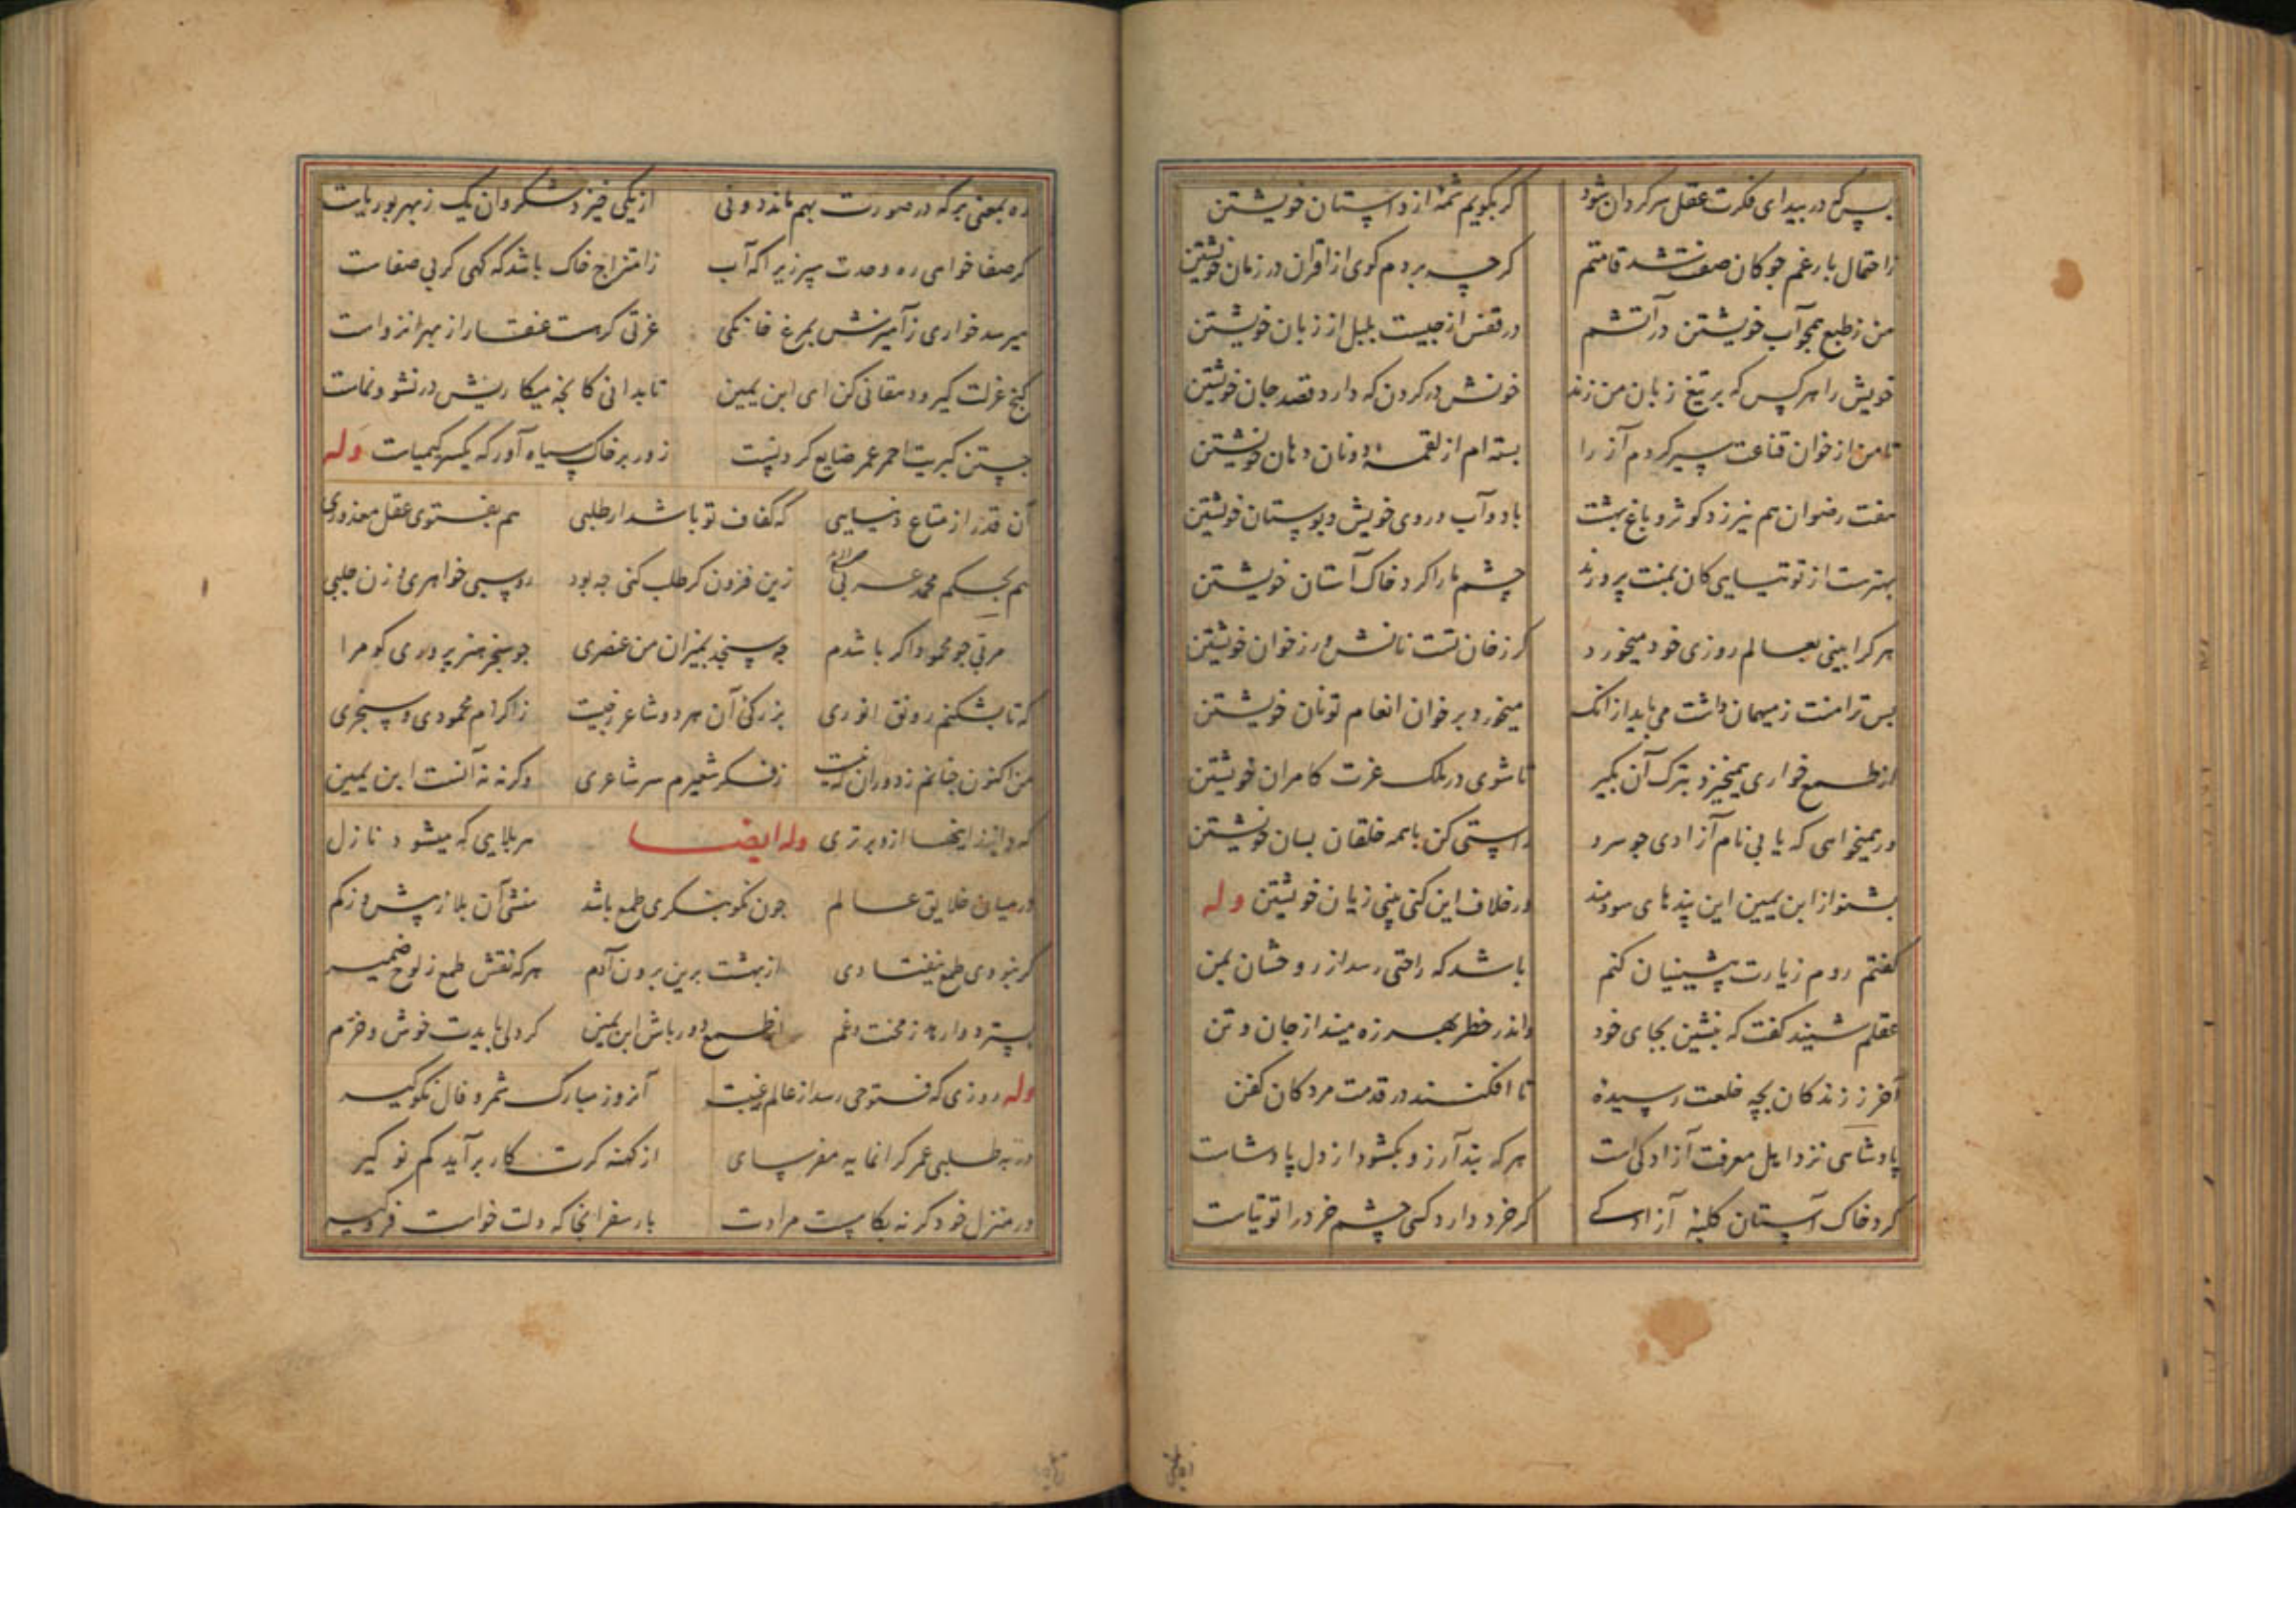 بس که در بیدای فکرت عقل سرکردان شود کر بکویم شمهٔ از داستان خویشتن
ز احتمال بار غم جوکان صفت شد قامتم کرچه بردم کوی از اقران در زمان خویشتن
من ز طبع همجو آب خویشتن در آتشم در قفس از جیست بلبل از زبان خویشتن
خویش را هر کس که بر تیغ زبان من زند خونش در کردن که دارد قصد جان خویشتن
تا من از خوان قناعت سیر کردم آز را بسته ام از لقمه دونان دهان خویشتن
مفت رضوان هم نیرزد کوثر و باغ بهشت باد و آب و روی خویش و بوستان خویشتن
بهترست از توتیایی کان بمنت پرورند چشم ما را کرد خاک آستان خویشتن
هر کرا بینی بعالم روزی خود میخورد کر ز خان تست نانش ور ز خوان خویشتن
بس ترا منت ز میهمان داشت می باید از انک میخورد بر خوان انعام تو نان خویشتن
از طمع خواری همیخیزد بترک آن بکیر تا شوی در ملک عزت کامران خویشتن
ور همیخواهی که یابی نام آزادی جو سرو راستی کن با همه خلقان بسان خویشتن
بشنو از ابن یمین این پندهای سودمند ور خلاف این کنی بینی زیان خویشتن وله
کفتم روم زیارت پیشینیان کنم باشد که راحتی رسد از روحشان بمن
عقلم شنید کفت که بنشین بجای خود واندر خطر بهرزه مینداز جان و تن
آخر ز زندکان بچه خلعت رسیدهٔ تا افکنند در قدمت مردکان کفن
پادشاهی نزد اهل معرفت آزادکی است هر که بند آرزو بکشود از دل پادشاست
کرد خاک آستان کلبهٔ آزادکی کر خرد دارد کسی چشم خرد را توتیاست
ره بمعنی بر که در صورت بهم ماند دو نی از یکی خیزد شکر وان یک ز بهر بوریاست
کر صفا خواهی ره وحدت سپر زیرا که آب ز امتزاج خاک باشد که کهی کر بی صفاست
میرسد خواری ز آمیزش بمرغ خانکی عزتی کر هست عنقا را ز بهر انزواست
کنج عزلت کیر و دهقانی کن ای ابن یمین تا بدانی کانجه میکاریش در نشو و نماست
جستن کبریت احمر عمر ضایع کردنست زور بر خاک سیاه آور که یکسر کیمیاست وله
آن قدر از متاع دنیایی که کفاف تو باشد ار طلبی هم بفتوی عقل معذوری
هم بحکم محمد عربی زین فزون کر طلب کنی جه بود روسپی خواهری و زن جلبی
مربی جو محمود اکر باشدم جه سنجد بمیزان من عنصری جو سنجر هنر پروری کو مرا
که تا بشکنم رونق انوری بزرکی آن هر دو شاعر ز جیست ز اکرام محمودی و سنجری
من اکنون جنانم ز دوران که نیست ز فکر شعیرم سر شاعری وکرنه نه آنست ابن یمین
که دانند اینها ازو برتری وله ایضا هر بلایی که میشود نازل
در میان خلایق عالم جون نکو بنکری طمع باشد منشی آن بلا ز بیش و ز کم
کر نبودی طمع نیفتادی از بهشت برین برون آدم هر که نقش طمع ز لوح ضمیر
بسترد وارهد ز محنت و غم از طمع دور باش ابن یمین کر دلی بایدت خوش و خرم
وله روزی که فتوحی رسد از عالم غیبت آنروز مبارک شمر و فال نکو کیر
ور به طلبی عمر کرانمایه مفرسای از کهنه کرت کار برآید کم نو کیر
در منزل خود کر نه بکامست مرادت بار سفر انجا که دلت خواست فرو کیر